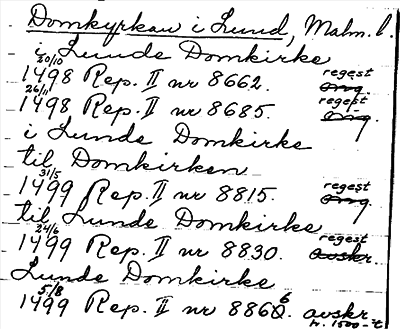 Domkyrkan i Lund, Malm. l.
i Lunde Domkirke
20/10 1498 Rep. II nr 8662. regest
26/11 1498 Rep. II nr 8685. regest
i Lunde Domkirke
til Domkirken
31/5 1499 Rep. II nr 8815. regest
til Lunde Domkirke
24/6 1499 Rep. II nr 8830. regest avskr.
Lunde Domkirke
5/8 1499 Rep. II nr 8866. avskr.
h. 1500-t